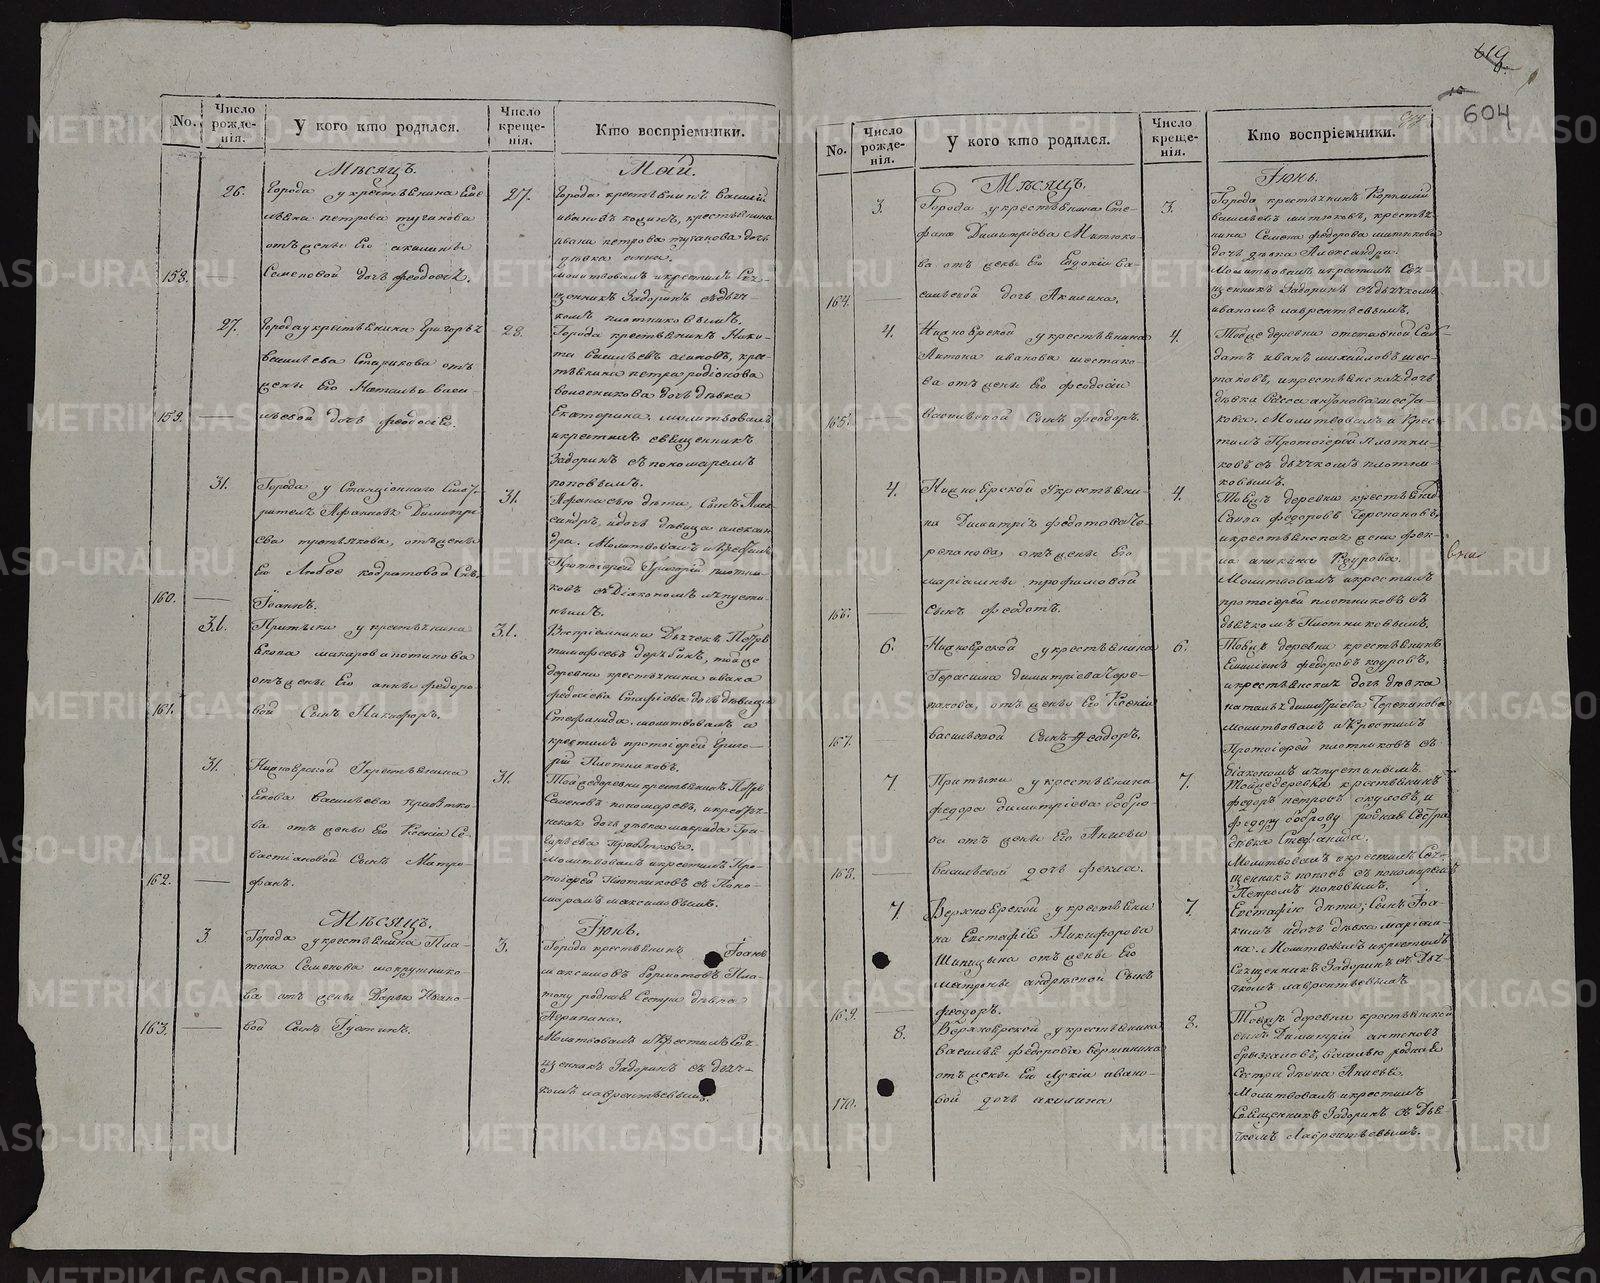 No.
Число рожде-
нія.
У кого кто родился.
Число креще-
нія.
Кто воспріемники.
Мѣсяцъ.
Май.
26.
Города у крестьянина Еме
льяна петрова тугакова
отъ жены Его акилины
158.
Семеновой дочь феодосья.
27.
Города крестьянинъ Василій
ивановъ кощинъ, крестьянина
ивана петрова тугакова дочь
дѣвка анна.
молитвовалъ и крестилъ Свя-
щенникъ Задоринъ съ дьяч-
комъ плотниковымъ.
27.
Города у крестьянина Григорья
васильева Старикова отъ
жены Его Натальи васи-
159.
льевой дочь феодосія.
28.
Города крестьянинъ Ники-
та васильевъ агаповъ, кре-
стьянина петра родіонова
дочь дѣвка
Екатерина. молитвовалъ
и крестилъ священникъ
Задоринъ съ пономаремъ
поповымъ.
31.
Города у Станціоннаго Смот-
рителя Афанасья Димитрі-
ева третьякова, отъ жены
Его Любве кодратовой Сынъ
160.
Іоаннъ.
31.
Афанасью дѣти, Сынъ Алек
сандръ, и дочь дѣвица алексан
дра. Молитвовалъ и крестилъ
Протоіерей Григорій плотни-
ковъ съ Діакономъ
31.
Притыки у крестьянина
Екопа макарова потапова
отъ жены Его анны федоро-
161.
вой Сынъ Никифоръ.
31.
Воспріемники Дьячекъ Петръ
тимофеевъ дерябинъ, той же
деревни крестьянина ивана
федосеева дочь дѣвица
Стефанида. молитвовалъ и
крестилъ протоіерей Григо-
рій Плотниковъ.
31.
Нижноерской У крестьянина
Екова Васильева прибытко-
ва отъ жены Его Ксенія Се-
вастіановой Сынъ Матро-
162.
фанъ.
31.
Той же деревни крестьянинъ Петръ
Семеновъ пономаревъ, и крестья-
нская дочь дѣвка маврида Гри-
горьева Прибыткова.
молитвовалъ и крестилъ Про-
тоіерей Плотниковъ съ Поно-
маремъ максимовымъ.
Мѣсяцъ.
Іюнь.
3.
Города у крестьянина Пла-
тона Семенова шокрутнико-
ва отъ жены Дарьи Ивано-
163.
вой Сынъ Іустинъ.
3.
Города крестьянинъ Іоанъ
максимовъ Бормотовъ, Пла-
тону родная Сестра дѣвка
Агрипина.
Молитвовалъ и крестилъ Свя-
щенникъ Задоринъ съ дьяч-
комъ лаврентьевымъ.
604
No.
Число рожде-
нія.
У кого кто родился.
Число креще-
нія.
Кто воспріемники.
Мѣсяцъ.
Іюнь.
3.
Города у крестьянина Сте-
фана Димитріева Митюко-
ва отъ жены Его Евдокіи Ва-
164.
сильевой дочь Акилина.
3.
Города крестьянинъ Корнилій
васильевъ митюковъ, крестья-
нина Семена федорова митюкова
дочь дѣвка Александра.
Молитвовалъ и крестилъ Свя-
щенникъ Задоринъ съ дьячкомъ
иваномъ лаврентьевымъ.
4.
Нижноерской у крестьянина
Антона иванова шестако-
ва отъ жены Его феодосіи
165.
васильевой Сынъ феодоръ.
4.
Тойже деревни отставной Сол-
датъ иванъ михайловъ шес-
таковъ, и крестьянская дочь
дѣвка антонова шеста-
кова. Молитвовалъ и крес-
тилъ Протоіерей плотни-
ковъ съ дьячкомъ плотни-
ковымъ.
4.
Нижноерской У крестьяни-
на Димитрія федотова Че-
репанова, отъ жены Его
маріамны трофимовой
166.
Сынъ федотъ.
4.
Тоежъ деревни крестьянинъ
Савва федоровъ Черепановъ,
и крестьянская жена фек-
ла Коурова.
Молитвовалъ и крестилъ
протоіерей плотниковъ съ
дьячкомъ Плотниковымъ.
6.
Нижноерской у крестьянина
Герасима димитріева Чере-
панова, отъ жены Его Ксеніи
167.
васильевой Сынъ феодоръ.
6.
Тоежъ деревни крестьянинъ
Емилианъ федоровъ коуровъ,
и крестьянская дочь дѣвка
наталья димитріева Черепанова
молитвовалъ и крестилъ
Протоіерей плотниковъ съ
7.
Притыки у крестьянина
федора димитріева боброва
отъ жены Его Анисьи
168.
васильевой дочь фекла.
7.
Тойже деревни крестьянинъ
федоръ петровъ окуловъ, и
федору боброву родная Сестра
дѣвка Стефанида.
Молитвовалъ и крестилъ Свя-
щенникъ поповъ съ пономаремъ
Петромъ поповымъ.
7.
Верхноерской у крестьяни
на Евстафія Никифорова
Шипицына отъ жены Его
матроны андреевой Сынъ
169.
феодоръ.
7.
Евстафію дѣти; Сынъ Іоа-
кимъ и дочь дѣвка маріам-
на. Молитвовалъ и крестилъ
Священникъ Задоринъ съ Дья-
чкомъ лаврентьевымъ.
8.
Верхноерской у крестьянина
Василья федорова вершинина
отъ жены Его Лукіи ивано-
170.
вой дочь акулина
8.
Тоежъ деревни крестьянской
сынъ Димитрій антоновъ
брызгаловъ, василью родная
Сестра дѣвка Анисья.
Молитвовалъ и крестилъ
Священникъ Задоринъ съ Дья-
чкомъ Лаврентьевымъ.
METRIKI.GASO-URAL.RU